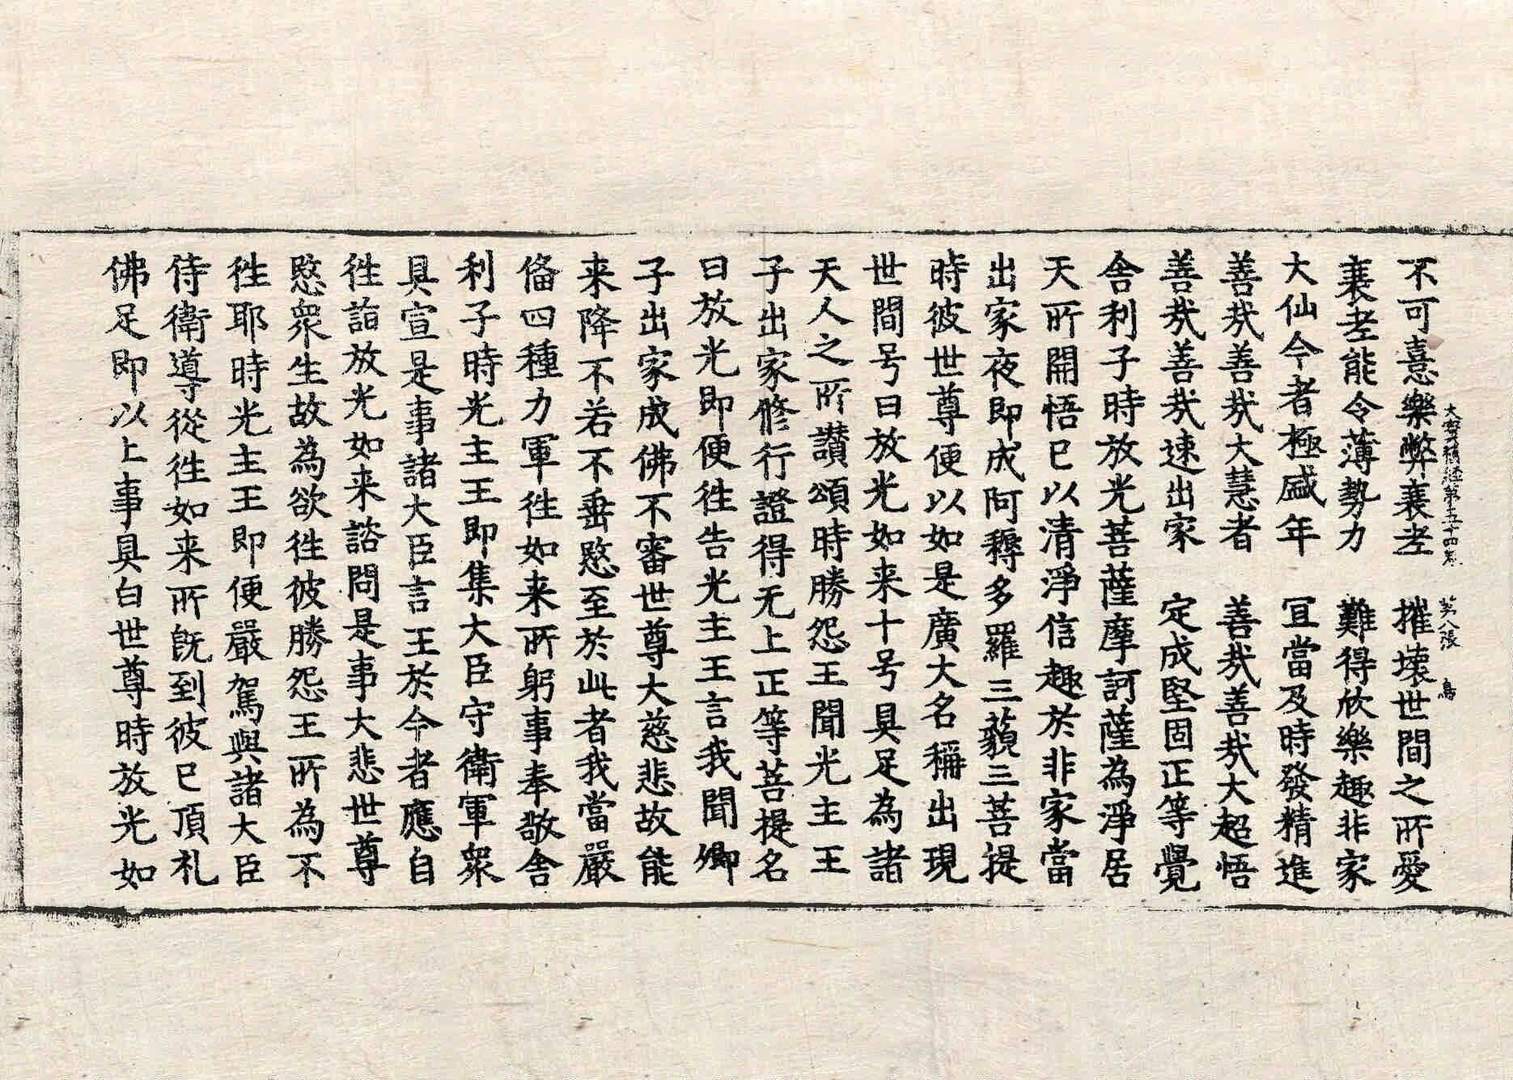 大寶積經第五十四卷 第八張 鳥
不可憙樂弊衰老 摧壞世間之所愛
衰老能令薄勢力 難得欣樂趣非家
大仙今者極盛年 冝當及時發精進
善哉善哉大慧者 善哉善哉大超悟
善哉善哉速出家 定成堅固正等覺
舍利子時放光菩薩摩訶薩為淨居
天所開悟已以清淨信趣於非家當
出家夜即成阿耨多羅三藐三菩提
時彼世尊便以如是廣大名稱出現
世間号曰放光如来十号具足為諸
天人之所讚頌時勝怨王聞光主王
子出家修行證得无上正等菩提名
曰放光即便徃告光主王言我聞卿
子出家成佛不審世尊大慈悲故能
来降不若不垂愍至於此者我當嚴
俻四種力軍徃如来所躬事奉敬舍
利子時光主王即集大臣守衛軍衆
具宣是事諸大臣言王於今者應自
徃詣放光如来諮問是事大悲世尊
愍衆生故為欲徃彼勝怨王所為不
徃耶時光主王即便嚴駕與諸大臣
侍衛導從徃如来所既到彼已頂礼
佛足即以上事具白世尊時放光如